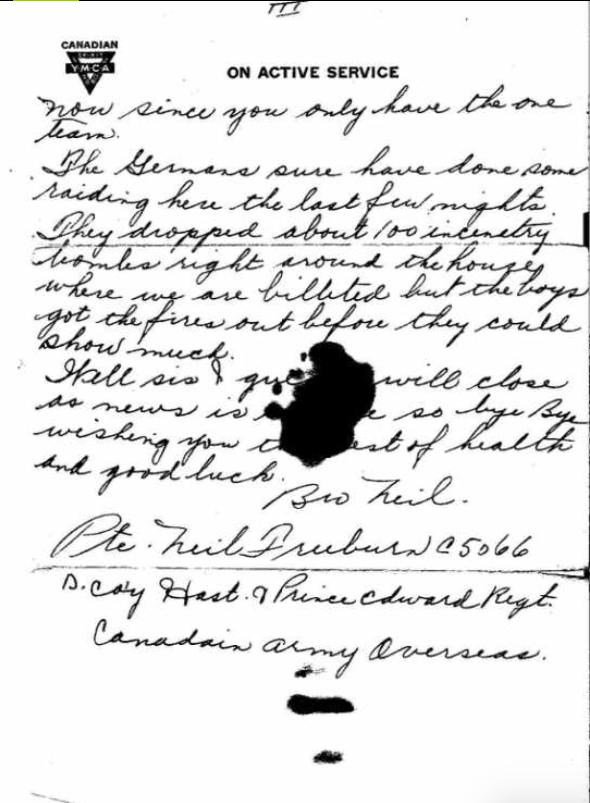 III
CANADIAN
YMCA
ON ACTIVE SERVICE
now since you only have the one
team.
The Germans sure have done some
raiding here the last few nights.
They dropped about 100 incenetry
bombes right around the house
where we are billited but the boys
got the fires out before they could
show much.
Well sis I will close
as news is so bye Bye
wishing you of health
and good luck.
Bro Neil.
Pte. Neil Freeburn C5066
D. Coy Hast. & Prince Edward Regt.
Canadain Army Overseas.